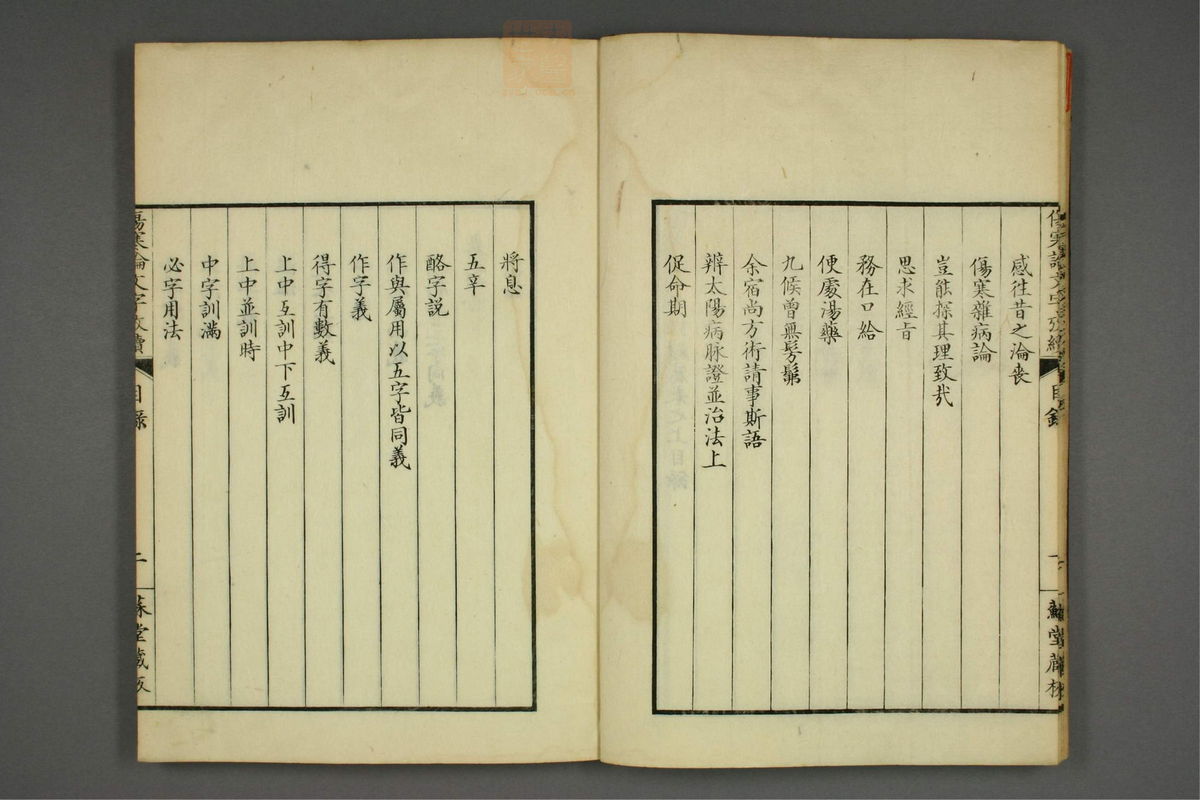 感往昔之淪喪
傷寒雜病論
豈能探其理致哉
思求經旨
務在口給
便處湯藥
九候曾無髣髴
余宿尚方術請事斯語
辨太陽病脉證並治法上
促命期
將息
五辛
酪字説
作與屬用以五字皆同義
作字義
得字有數義
上中互訓中下互訓
上中並訓時
中字訓滿
必字用法
傷寒論文字攷續
目錄
二
穌堂藏板